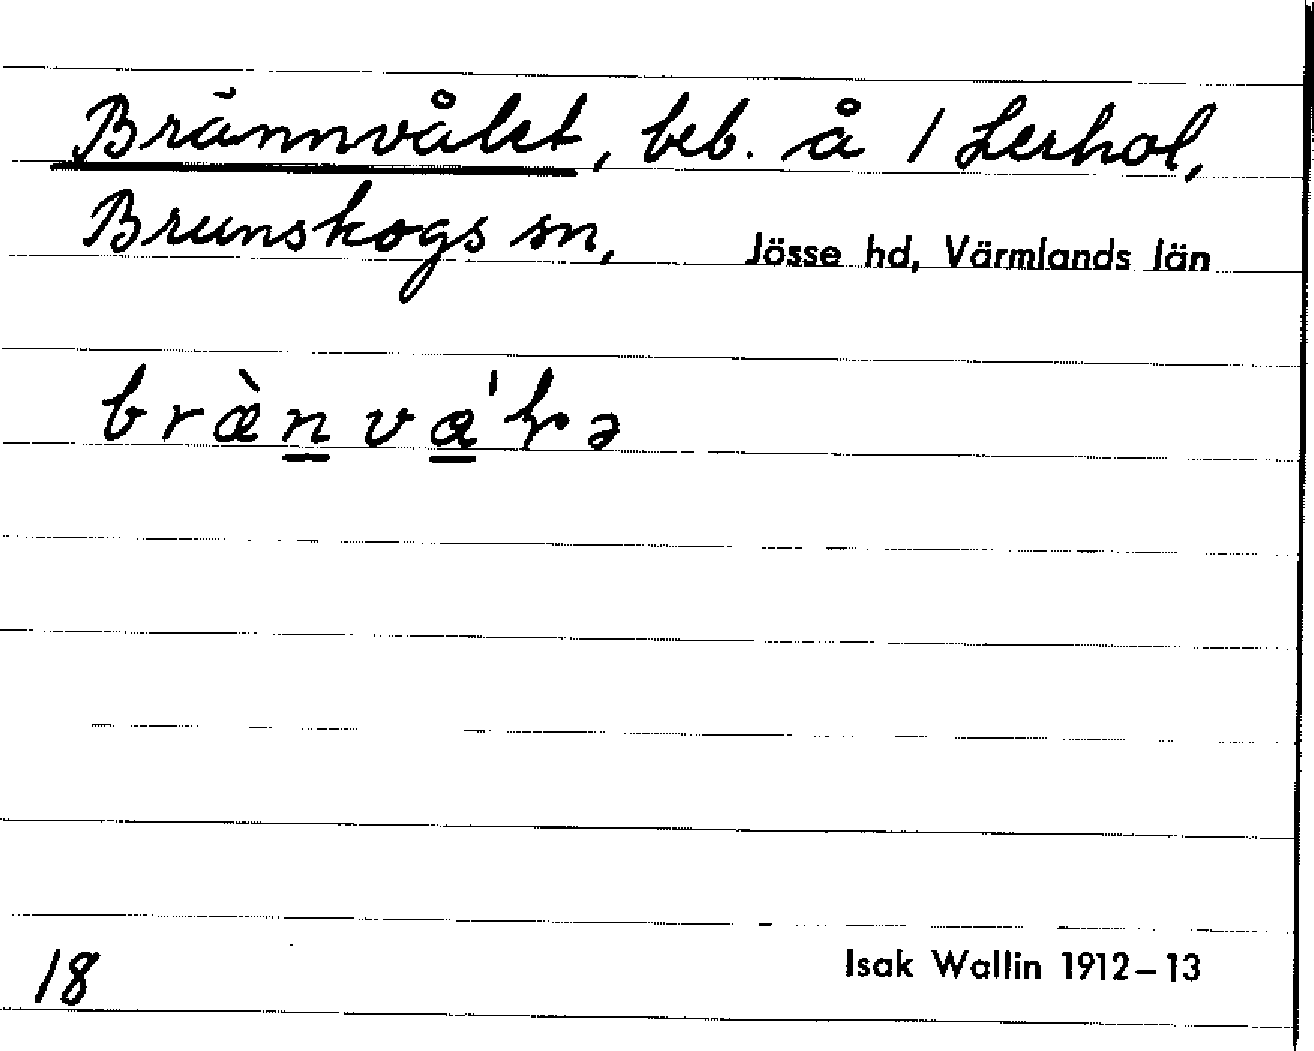 Brännvålet, beb. å 1 Lerhol,
Brunskogs sn, Jösse hd, Värmlands län
18
Isak Wallin 1912–13